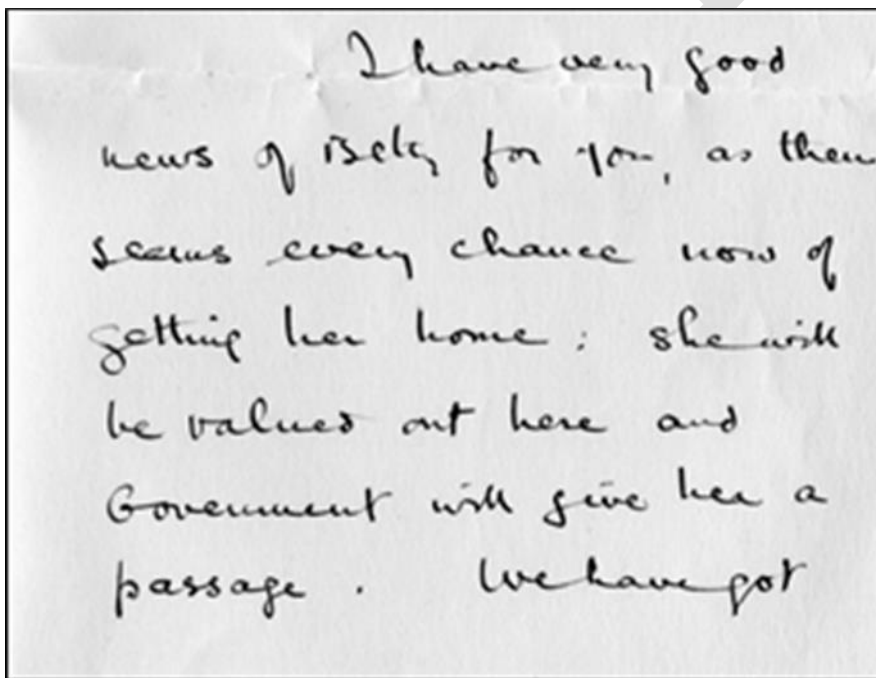 I have very good
news of Betty for you, as there
seems every chance now of
getting her home : she will
be valued out here and
Government will give her a
passage . We have got